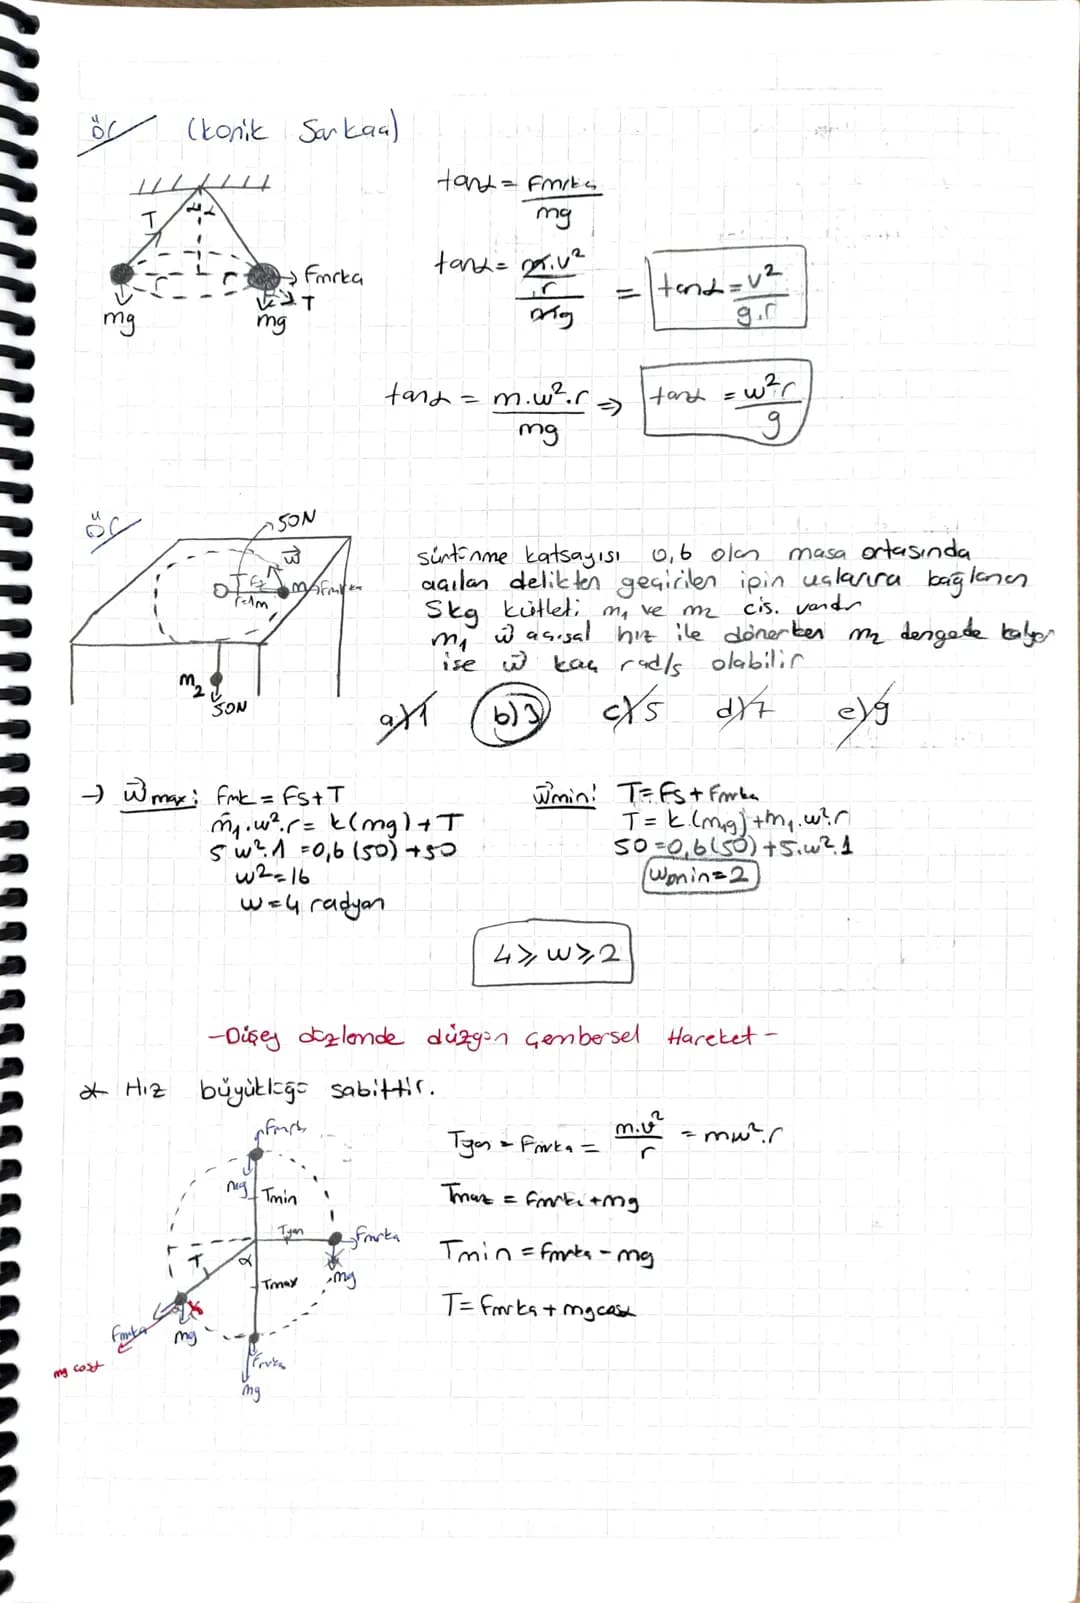 ör (konik Sarkaç)
tanα = Fmrkç / mg
T
α α
r r
Fmrkç
T
mg
mg
tanα = m.v² / r / mg = tanα = v² / g.r
tanα = m.w².r / mg ⇒ tanα = w²r / g
ör
50N
w
O T Fs m₁ Fmrkç
r=1m
m₂
50N
sürtünme katsayısı 0,6 olan masa ortasında
açılan delikten geçirilen ipin uçlarına bağlanan
5kg kütleli m₁ ve m₂ cis. vardır
m₁ w açısal hız ile dönerken m₂ dengede kalıyor
ise w kaç rad/s olabilir
a) 1 b) 3 c) 5 d) 7 e) 9
→ wmax: Fmk = Fs+T
m₁.w².r = k(mg)+T
5 w².1 = 0,6 (50) +50
w² = 16
w = 4 radyan
wmin: T = Fs + Fmrkç
T = k.(m₁g) + m₁.w².r
50 = 0,6(50) + 5.w².1
wmin = 2
4 ⩾ w ⩾ 2
-Düşey düzlemde düzgün Çembersel Hareket-
* Hız büyüklüğü sabittir.
Fmrkç
mg
Tmin
Tyan
Fmrkç
mg
T
α
Tmax
Fmrkç
mg
mg cosα
Fmrkç
mg
Tyan = Fmrkç = m.v² / r = mw².r
Tmax = Fmrkç + mg
Tmin = Fmrkç - mg
T = Fmrkç + mgcosα